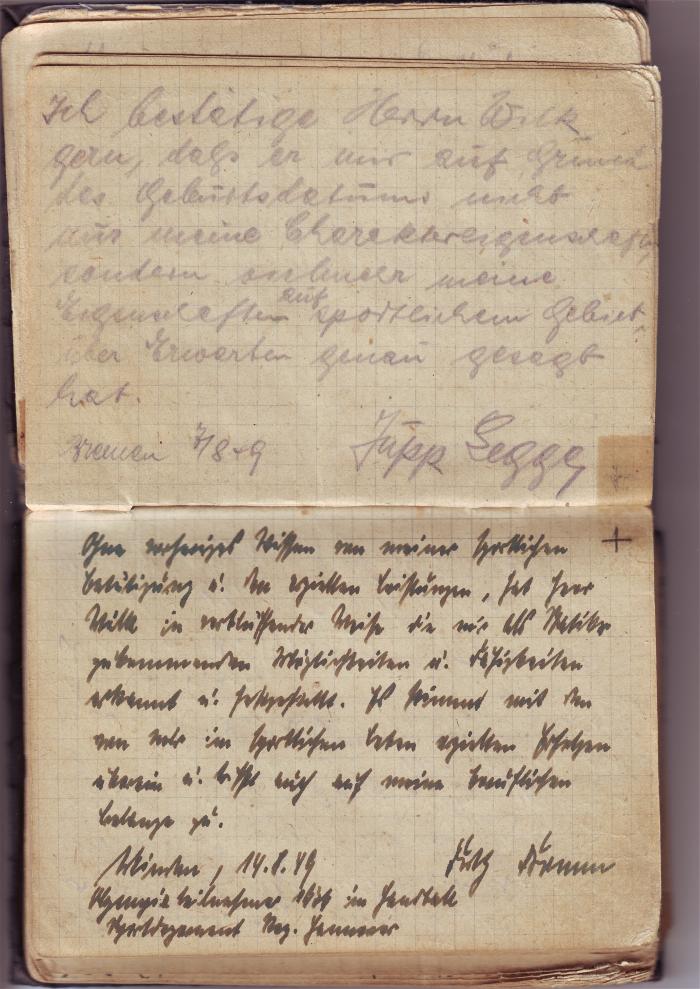 Ich bestätige Herrn Wilk
gern, daß er mir auf Grund
des Geburtsdatums nicht
nur meine Charaktereigenschaften
sondern meine
Eigenschaften auf sportlichem Gebiet
über Erwarten genau gesagt
hat.
Bremen 7/8 49 Jupp
Ohne vorheriges Wissen von meiner sportlichen
Betätigung u. den erzielten Leistungen, hat Herr
Wilk in verblüffender Weise die mir als
zukommenden Möglichkeiten u. Fähigkeiten
erkannt u. festgestellt. Es stimmt mit den
von mir im sportlichen Leben erzielten Erfolgen
überein u. trifft auch auf meine beruflichen
Belange zu.
Minden, 14.8.49 Fritz
Olympiateilnehmer 1936 im Handball
Sportdezernent Reg. Hannover